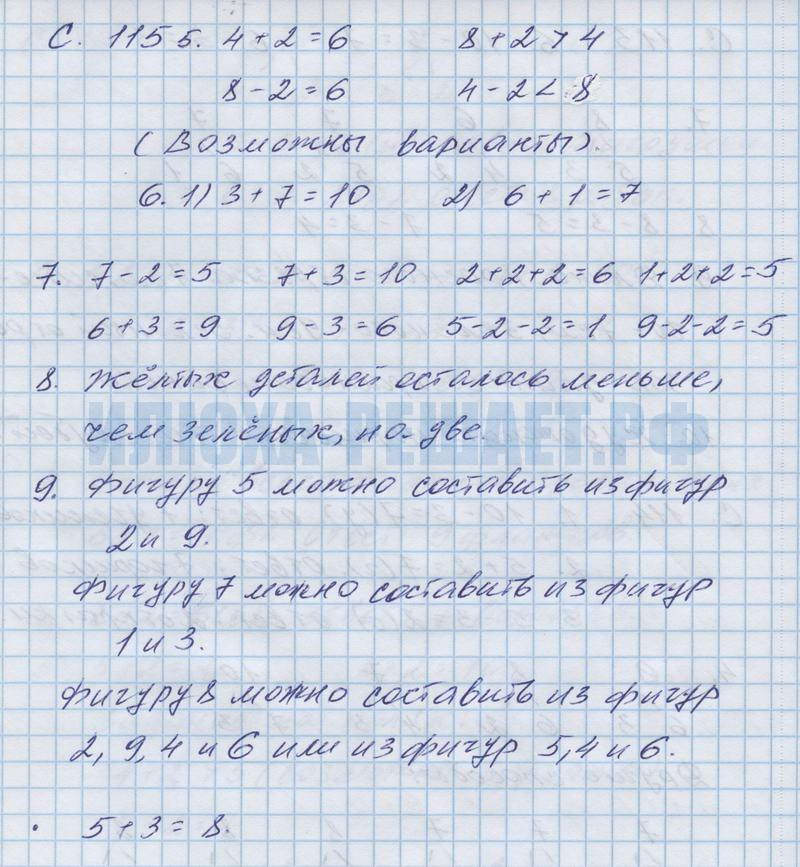 С. 115 5. 4+2=6 8+2>4
8-2=6 4-2<8
(Возможны варианты).
6. 1) 3+7=10 2) 6+1=7
7. 7-2=5 7+3=10 2+2+2=6 1+2+2=5
6+3=9 9-3=6 5-2-2=1 9-2-2=5
8. Жёлтых деталей осталось меньше,
чем зелёных, на две.
ИЛЮХА-РЕШАЕТ.РФ
9. Фигуру 5 можно составить из фигур
2 и 9.
Фигуру 7 можно составить из фигур
1 и 3.
Фигуру 8 можно составить из фигур
2, 9, 4 и 6 или из фигур 5, 4 и 6.
. 5+3=8.